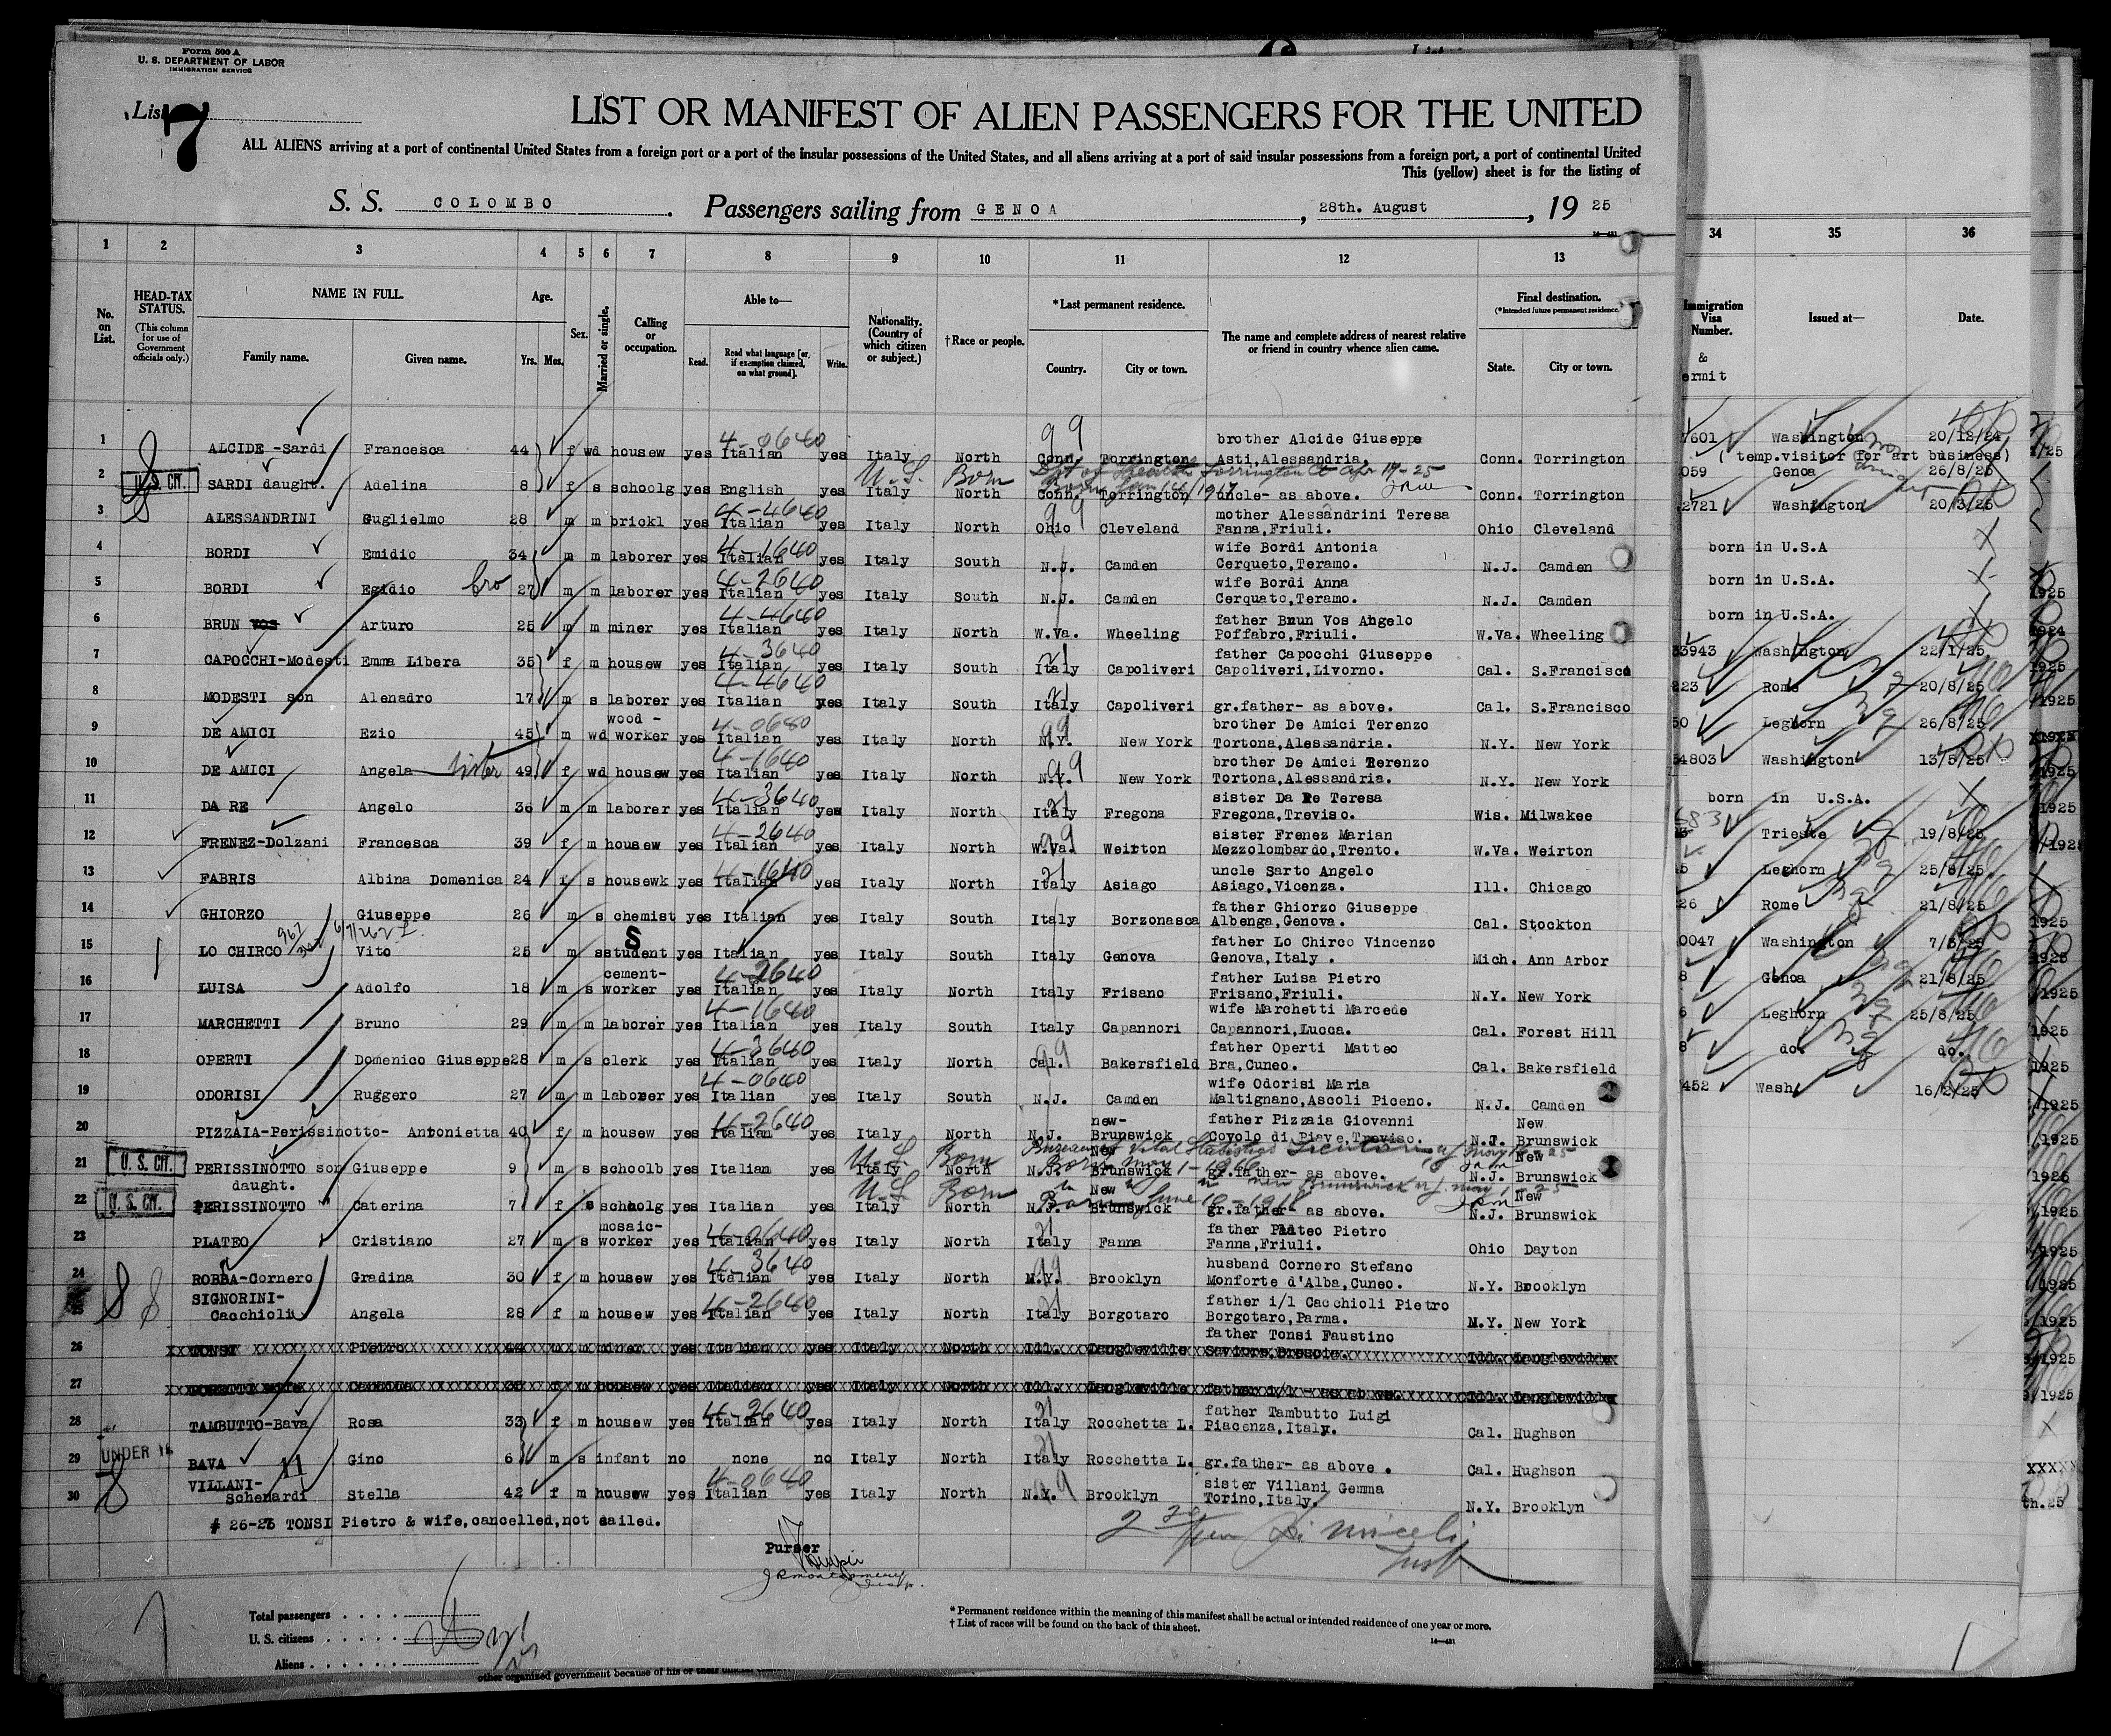 Form 500 A
U. S. DEPARTMENT OF LABOR
IMMIGRATION SERVICE
List 7
LIST OR MANIFEST OF ALIEN PASSENGERS FOR THE UNITED
ALL ALIENS arriving at a port of continental United States from a foreign port or a port of the insular possessions of the United States, and all aliens arriving at a port of said insular possessions from a foreign port, a port of continental United
This (yellow) sheet is for the listing of
S. S. COLOMBO. Passengers sailing from GENOA, 28th. August, 19 25
1 2 3 4 5 6 7 8 9 10 11 12 13 34 35 36
No. on List. HEAD-TAX STATUS. (This column for use of Government officials only.) NAME IN FULL. Family name. Given name. Age. Yrs. Mos. Sex. Married or single. Calling or occupation. Able to— Read. Read what language [or, if exemption claimed, on what ground]. Write. Nationality. (Country of which citizen or subject.) †Race or people. *Last permanent residence. Country. City or town. The name and complete address of nearest relative or friend in country whence alien came. Final destination. (*Intended future permanent residence. State. City or town. Immigration Visa Number. & ermit Issued at— Date.
brother Alcide Giuseppe
1 ALCIDE -Sardi Francesca 44 f wd housew yes Italian 4-0640 yes Italy North Conn. 99 Torrington Asti, Alessandria, Conn. Torrington
2 U.S. CIT. SARDI daught. Adelina 8 f s schoolg yes English yes Italy U.S. Born North Conn. Torrington uncle- as above. Conn. Torrington
mother Alessandrini Teresa
3 ALESSANDRINI Guglielmo 28 m m brickl yes Italian 4-4640 yes Italy North Ohio 99 Cleveland Fanna, Friuli. Ohio Cleveland
wife Bordi Antonia
4 BORDI Emidio 34 m m laborer yes Italian 4-1640 yes Italy South N.J. Camden Cerqueto, Teramo. N.J. Camden
wife Bordi Anna
5 BORDI Egidio bro 27 m m laborer yes Italian 4-2640 yes Italy South N.J. Camden Cerquato, Teramo. N.J. Camden
father Brun Vos Angelo
6 BRUN VOS Arturo 25 m m miner yes Italian 4-4640 yes Italy North W.Va. Wheeling Poffabro, Friuli. W.Va. Wheeling
father Capocchi Giuseppe
7 CAPOCCHI-Modesti Emma Libera 35 f m housew yes Italian 4-3640 yes Italy South Italy Capoliveri Capoliveri, Livorno. Cal. S.Francisco
8 MODESTI son Alenadro 17 m s laborer yes Italian 4-4640 yes Italy South Italy Capoliveri gr.father- as above. Cal. S.Francisco
wood - brother De Amici Terenzo
9 DE AMICI Ezio 45 m wd worker yes Italian 4-0640 yes Italy North N.Y. 99 New York Tortona, Alessandria. N.Y. New York
brother De Amici Terenzo
10 DE AMICI Angela sister 49 f wd housew yes Italian 4-1640 yes Italy North N.Y. 99 New York Tortona, Alessandria. N.Y. New York
sister Da Re Teresa
11 DA RE Angelo 36 m m laborer yes Italian 4-3640 yes Italy North Italy Fregona Fregona, Treviso. Wis. Milwakee
sister Frenez Marian
12 FRENEZ-Dolzani Francesca 39 f m housew yes Italian 4-2640 yes Italy North W.Va. 99 Weirton Mezzolombardo, Trento. W.Va. Weirton
uncle Sarto Angelo
13 FABRIS Albina Domenica 24 f s housewk yes Italian 4-1640 yes Italy North Italy Asiago Asiago, Vicenza. Ill. Chicago
father Ghiorzo Giuseppe
14 GHIORZO Giuseppe 26 m s chemist yes Italian yes Italy South Italy Borzonasca Albenga, Genova. Cal. Stockton
father Lo Chirco Vincenzo
15 LO CHIRCO Vito 25 m s student S yes Italian yes Italy South Italy Genova Genova, Italy . Mich. Ann Arbor
cement- father Luisa Pietro
16 LUISA Adolfo 18 m s worker yes Italian 4-2640 yes Italy North Italy Frisano Frisano, Friuli. N.Y. New York
wife Marchetti Marcede
17 MARCHETTI Bruno 29 m m laborer yes Italian 4-1640 yes Italy South Italy Capannori Capannori, Lucca. Cal. Forest Hill
father Operti Matteo
18 OPERTI Domenico Giuseppe 28 m s clerk yes Italian 4-3640 yes Italy North Cal. 99 Bakersfield Bra, Cuneo. Cal. Bakersfield
wife Odorisi Maria
19 ODORISI Ruggero 27 m m laborer yes Italian 4-0640 yes Italy South N.J. Camden Maltignano, Ascoli Piceno. N.J. Camden
new- father Pizzaia Giovanni New
20 PIZZAIA-Perissinotto- Antonietta 40 f m housew yes Italian 4-2640 yes Italy North N.J. Brunswick Covolo di Piave, Treviso. N.J. Brunswick
New New
21 U.S. CIT. PERISSINOTTO son Giuseppe 9 m s schoolb yes Italian yes Italy U.S. Born North N.J. Brunswick gr.father- as above. N.J. Brunswick
daught. New New
22 U.S. CIT. PERISSINOTTO " Caterina 7 f s schoolg yes Italian yes Italy U.S. Born North N.J. Brunswick gr.father- as above. N.J. Brunswick
mosaic- father Plateo Pietro
23 PLATEO Cristiano 27 m s worker yes Italian 4-0640 yes Italy North Italy Fanna Fanna, Friuli. Ohio Dayton
husband Cornero Stefano
24 ROBBA-Cornero Gradina 30 f m housew yes Italian 4-3640 yes Italy North N.Y. 99 Brooklyn Monforte d'Alba, Cuneo. N.Y. Brooklyn
SIGNORINI- father i/l Cacchioli Pietro
25 Cacchioli Angela 28 f m housew yes Italian 4-2640 yes Italy North Italy Borgotaro Borgotaro, Parma. N.Y. New York
father Tonsi Faustino
26 TONSI Pietro 44 m m miner yes Italian yes Italy North Ill. Saviore, Brescia. Ill.
27 f m housew yes Italian yes Italy North Ill. father i/l - as above. Ill.
father Tambutto Luigi
28 TAMBUTTO-Bava Rosa 33 f m housew yes Italian 4-2640 yes Italy North Italy Rocchetta L. Piacenza, Italy. Cal. Hughson
29 UNDER 16 BAVA 11 Gino 6 m s infant no none no Italy North Italy Rocchetta L. gr.father- as above . Cal. Hughson
VILLANI- sister Villani Gemma
30 Schenardi Stella 42 f m housew yes Italian 4-0640 yes Italy North N.Y. 99 Brooklyn Torino, Italy. N.Y. Brooklyn
# 26-27 TONSI Pietro & wife, cancelled, not sailed.
Purser
Total passengers
U. S. citizens
Aliens
* Permanent residence within the meaning of this manifest shall be actual or intended residence of one year or more.
† List of races will be found on the back of this sheet.
other organized government because of his or their official
7601 Washington 20/12/24
( temp.visitor for art business)
059 Genoa 26/8/25
2721 Washington 20/3/25
born in U.S.A
born in U.S.A.
born in U.S.A.
33943 Washington 22/1/25
223 Rome 20/8/25
50 Leghorn 26/8/25
34803 Washington 13/5/25
born in U.S.A.
3 Trieste 19/8/25
5 Leghorn 25/8/25
26 Rome 21/8/25
0047 Washington 7/5/25
8 Genoa 21/8/25
6 Leghorn 25/8/25
8 do. do.
452 Wash. 16/2/25